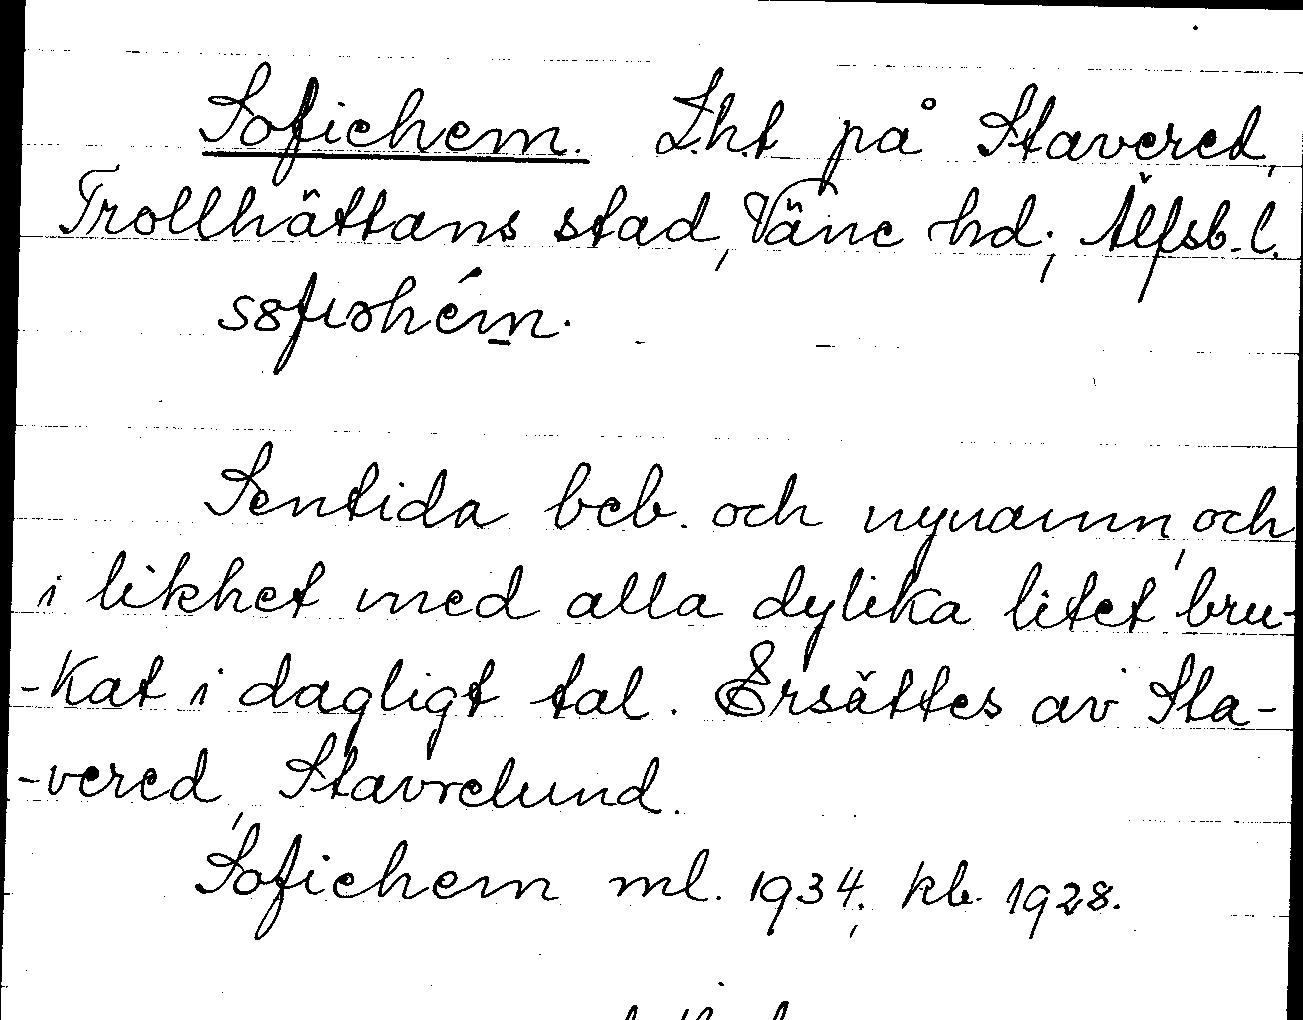 Sofiehem. Lht på Stavered,
Trollhättans stad, Väne hd; Älfsb. l.
Sentida beb. och nynamn, och
i likhet med alla dylika litet bru-
-kat i dagligt tal. Ersättes av Sta-
-vered, Stavrelund.
Sofiehem ml. 1934; kb. 1928.